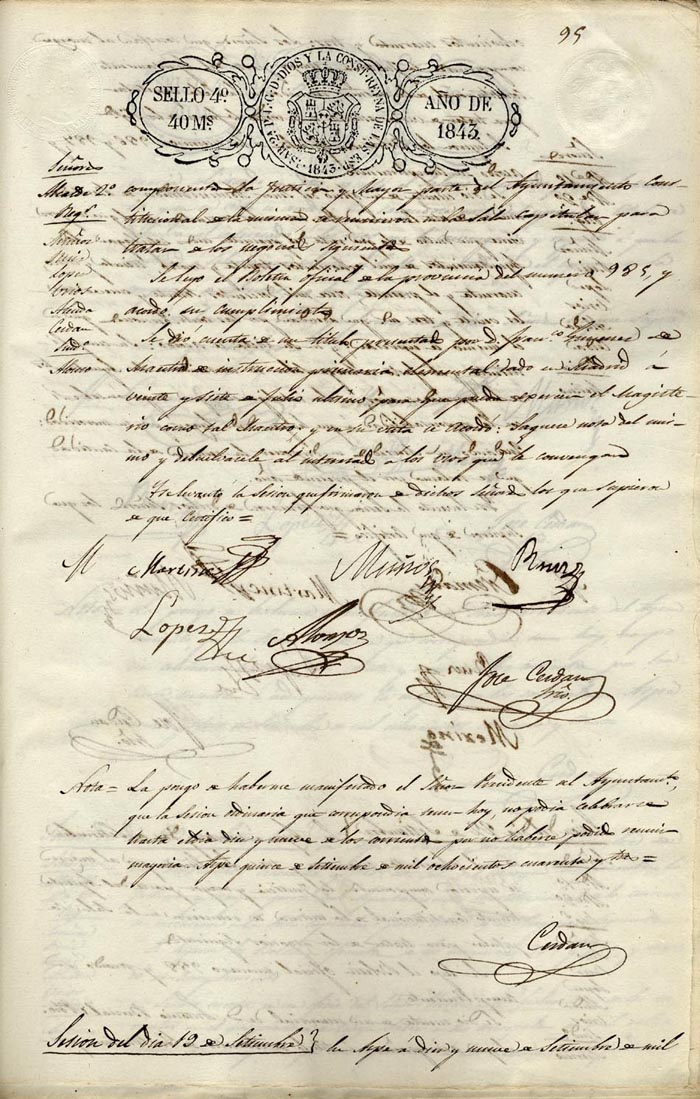 95
SELLO 4º
40 Ms
ISAB. 2ª P. L. G. D. DIOS Y LA CONST. REYNA DE LAS ESP.
1843.
AÑO DE
1843.
Señores
Alcalde 2º
Regs.
Muñoz
Lopez
Cerdan
Alonso
componentes la Justicia y Mayor parte del Ayuntamiento Cons-
titucional de la misma se reunieron en la Sala Capitular para
tratar de los negocios siguientes
Se leyo el Boletin oficial de la provincia del numero 985, y
acordó su cumplimiento
Se dió cuenta de un titulo presentado por D. Franco. de
Maestro de instruccion primaria elemental dado en Madrid á
veinte y siete de Julio ultimo para que pueda exercer el Magiste-
rio como tal Maestro y en su vista se acordó: Saquese nota del mis-
mo y debuelvacele al interesado a los usos que le convengan
Y se levantó la Sesion que firmaron de dichos Señores los que supieron
de que certifico=
M
Martinez
Muñoz
Ruiz
Lopez
Alonso
Jose Cerdan
Srio.
Nota= La pongo de haberme manifestado el Señor Presidente del Ayuntamto.
que la Sesion ordinaria que correspondia tener hoy, no podia celebrarse
hasta el dia diez y nueve de los corrientes por no haberse podido reunir
mayoria. Aspe quince de Setiembre de mil ochocientos cuarenta y tres=
Cerdan
Sesion del dia 19 de Setiembre} En Aspe a diez y nueve de Setiembre de mil